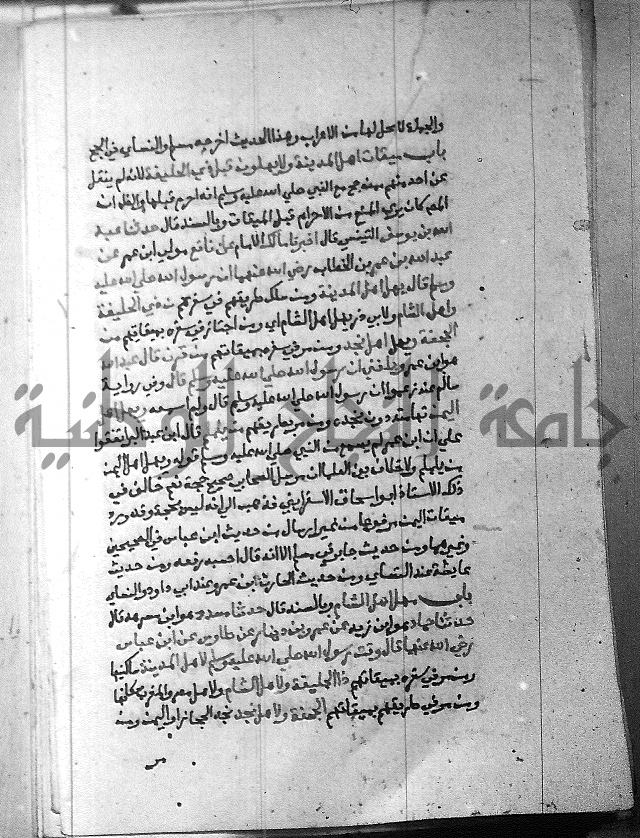 والجملة لا محل لها من الاعراب وهذا الحديث اخرجه مسلم والنساي في الحج
باب ميقات اهل المدينة ولا يهلون قبل ذي الحليفة لانه لم ينقل
عن احد منهم ممن حج مع النبي صلي الله عليه وسلم انه احرم قبلها والظاهر ان
المص كان يري المنع من الاحرام قبل الميقات وبالسند قال حدثنا عبد
الله بن يوسف التنيسي قال اخبرنا مالك الامام عن نافع مولي ابن عمر عن
عبد الله بن عمر بن الخطاب رضي الله عنهما ان رسول الله صلي الله عليه
وسلم قال يهل اهل المدينة ومن سلك طريقهم في سفرهم من ذي الحليفة
واهل الشام ولابي ذر يهل اهل الشام اي ومن اجتاز في سفره بميقاتهم من
الجحفة ويهل اهل نجد ومن مر في سفره بميقاتهم من قرن قال عبد الله
هو ابن عمر وبلغني ان رسول الله صلي الله عليه وسلم قال وفي رواية
سالم عنه زعموا ان رسول الله صلي الله عليه وسلم قال ولم اسمعه ويهل اهل
اليمن تهامته دون نجده ومن مر بطريقهم من يلملم قال ابن عبد البر اتفقوا
علي ان ابن عمر لم يسمع من النبي صلي الله عليه وسلم قوله ويهل اهل اليمن
من يلملم ولا خلاف بين العلما ان مرسل الصحابي صحيح حجة نعم خالف في
ذلك الاستاذ ابو اسحاق الاسفرايني فذهب الي انه ليس بحجة وقد ورد
ميقات اليمن مرفوعا من غير ارسال من حديث ابن عباس في الصحيحين
وغيرهما ومن حديث جابر في مسلم الا انه قال احسبه رفعه ومن حديث
عايشة عند النساي ومن حديث الحارث ابن عمرو عند ابي داود والنساي
باب مهل اهل الشام وبالسند قال حدثنا مسدد هو ابن مسرهد قال
حدثنا حماد هو ابن زيد عن عمرو بن دينار عن طاوس عن ابن عباس
رضي الله عنهما قال وقت رسول الله صلي الله عليه وسلم لاهل المدينة ساكنيها
ومن مر في سفره بميقاتهم ذا الحليفة ولاهل الشام ولاهل مصر والمغرب كلها
ومن مر في طريقهم بميقاتهم الجحفة ولاهل نجد نجد الحجاز او اليمن ومن
جامعة النجاح الوطنية